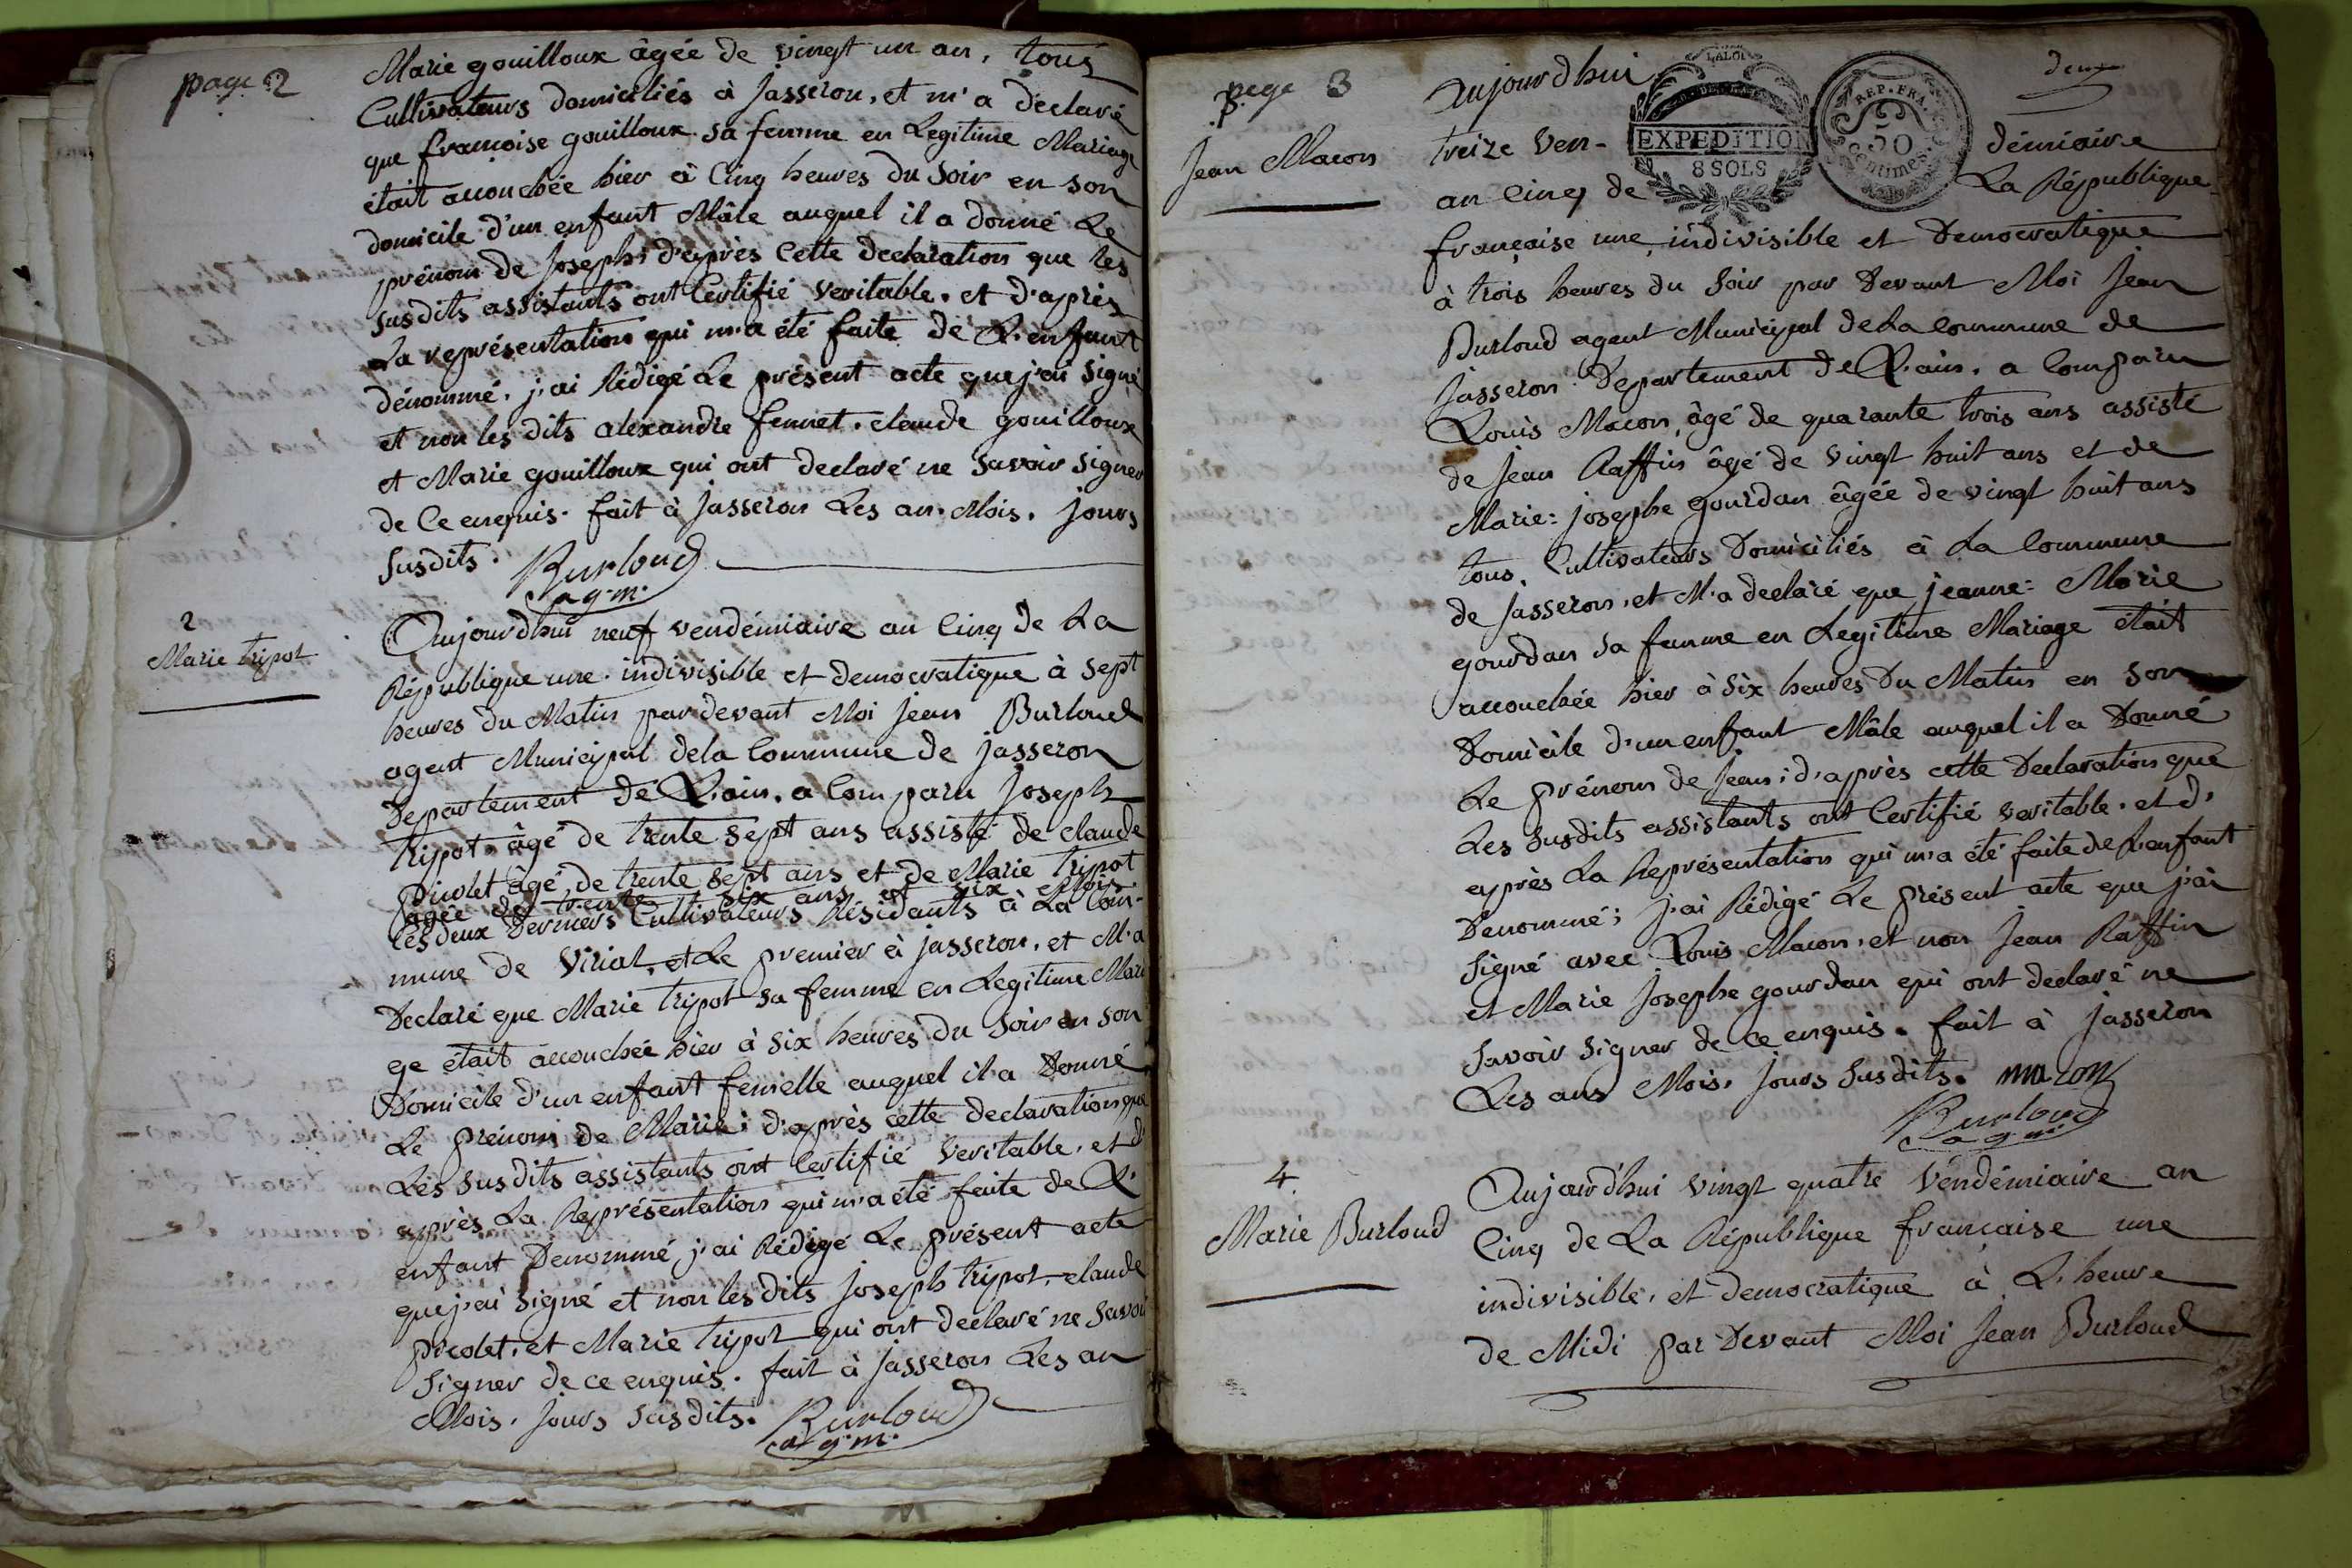 page 2
Marie gouilloux âgée de vingt un an, tous
Cultivateurs domiciliés à Jasseron, et m'a déclaré
que francoise gouilloux sa femme en Legitime Mariage
était accouchée hier à Cinq heures du Soir en son
domicile d'un enfant Mâle auquel il a donné Le
prénom de Joseph; d'après Cette declaration que les
susdits assistants ont Certifié veritable. et d'après
La représentation qui m'a été faite de L'enfant
dénommé, j'ai Rédigé Le présent acte que j'ai Signé
et non les dits alexandre fennet. claude gouilloux
et Marie gouilloux qui ont declaré ne Savoir Signer
de Ce enquis. fait à Jasseron Les an. Mois. jours
Susdits. Burloud
agm.
2
Marie tripot
Aujourdhui neuf vendémiaire an Cinq de La
République une. indivisible et democratique à Sept
heures du Matin par devant Moi Jean Burloud
agent Municipal dela Commune de jasseron
Departement de L'ain. a Comparu Joseph
tripot âgé de trente Sept ans assisté de claude
picolet âgé de trente sept ans et de Marie tripot
agée de trente six ans et six Mois
les deux Derniers Cultivateurs Résidants à La Com-
mune de Viriat, et Le premier à jasseron. et M'a
Declaré que Marie tripot sa femme en Legitime Maria
ge était accouchée hier à Six heures du Soir en son
Domicile d'un enfant femelle auquel il a Donné
Le prénom de Marie; d'après cette declaration que
Les susdits assistants ont Certifié veritable. et d'
après La Représentation qui m'a été faite de L'
enfant Denommé j'ai Rédigé Le présent acte
que j'ai Signé et non les dits Joseph tripot, claude
picolet, et Marie tripot qui ont declaré ne Savoir
Signer de ce enquis. fait à Jasseron Les an
Mois. Jours susdits. Burloud
agm.
page 3
deux
Jean Macon
aujourdhui
LA LOI
REP. FRA.
EXPEDITION
8 SOLS
50
centimes
treize Ven-
démiaire
an Cinq de
La République
française une, indivisible et Democratique
à trois heures du Soir par Devant Moi Jean
Burloud agent Municipal de La Commune de
Jasseron Departement de L'ain. a Comparu
Louis Macon, âgé de quarante trois ans assisté
de Jean Raffin âgé de vingt huit ans et de
Marie= josephe gourdan âgée de vingt huit ans
tous, Cultivateurs Domiciliés à La Commune
de Jasseron, et M'a declaré que jeanne= Marie
gourdan sa femme en Legitime Mariage était
accouchée hier à Six heures Du Matin en son
Domicile d'un enfant Mâle auquel il a Donné
Le prénom de Jean; d'après cette Declaration que
Les susdits assistants ont Certifié veritable. et d'
après La Représentation qui m'a été faite de L'enfant
Denommé; j'ai Rédigé Le présent acte que j'ai
Signé avec Louis Macon. et non Jean Raffin
et Marie Josephe gourdan qui ont declaré ne
Savoir Signer de ce enquis. fait à Jasseron
Les ans Mois. jours susdits. macon
Burloud
agm
4
Marie Burloud
Aujourd'hui vingt quatre Vendémiaire an
Cinq de La République francaise une
indivisible, et democratique à L'heure
de Midi par Devant Moi Jean Burloud